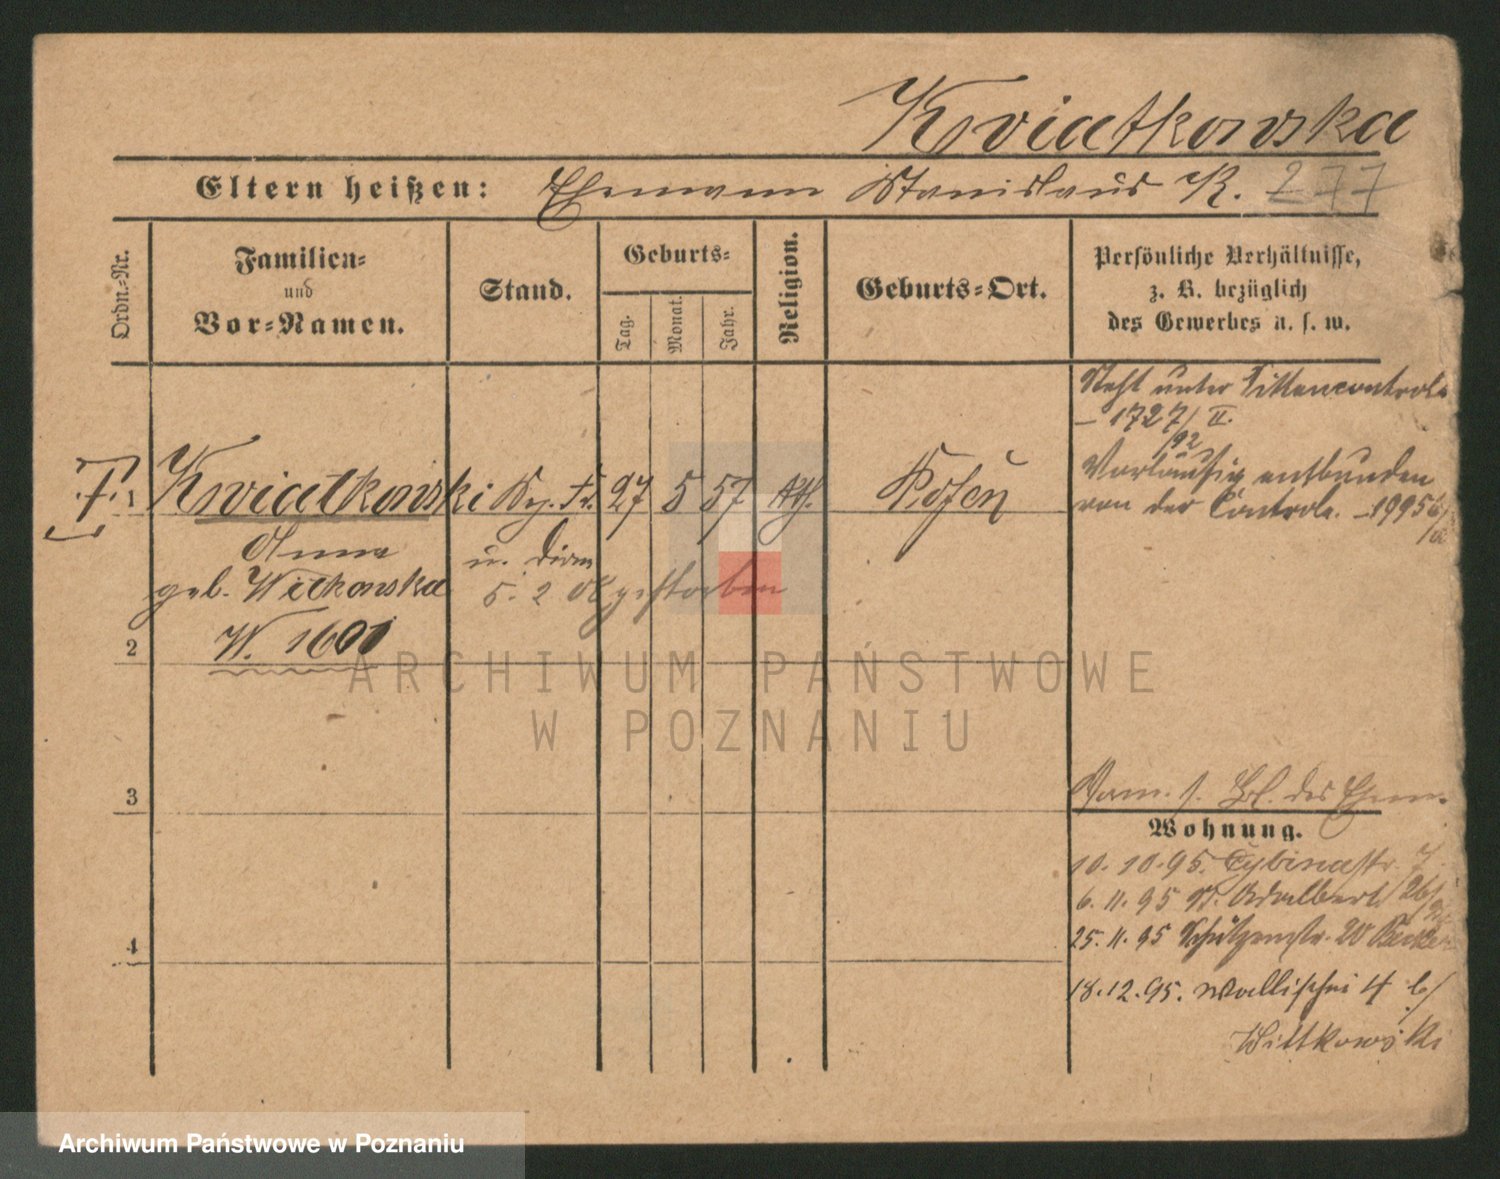 Kwiatkowska
Eltern heißen: Ehemann Stanislaus K. 277
Ordn.-Nr.
Familien-
und
Vor-Namen.
Stand.
Geburts-
Tag.
Monat.
Jahr.
Religion.
Geburts-Ort.
Persönliche Verhältnisse,
z. B. bezüglich
des Gewerbes u. s. w.
Steht unter Sittencontrole
– 1727/92 II.
Vorläufig entbunden
von der Controle. – 1995
1 Kwiatkowski 27 5 57 kth. Posen
Anna
geb. Witkowska
u. Dirne
gestorben
W. 1601
2
3
4
des Ehem.
Wohnung.
10.10.95. Cybinastr. 7.
6.11.95 St. Adalbert 26/
25.11.95 Schützenstr. 20 Becker
18.12.95. Wallischei 4 b/
Wittkowski
ARCHIWUM PAŃSTWOWE
W POZNANIU
Archiwum Państwowe w Poznaniu